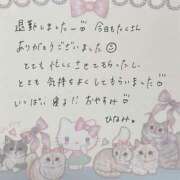 退勤しました
今日もたくさん
ありがとうございました
とても忙しくさせてもらったし
とても気持ちよくしてもらいました
いっぱい寝る!! おやすみ
ひなみ。